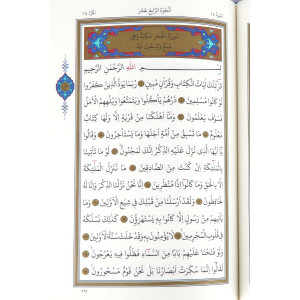 الجزء الرابع عشر
سورة الحجر مكية وهي
تسع وتسعون آية
بسم الله الرحمن الرحيم
الر تلك آيات الكتاب وقرآن مبين ربما يود الذين كفروا
لو كانوا مسلمين ذرهم يأكلوا ويتمتعوا ويلههم الأمل
فسوف يعلمون وما أهلكنا من قرية إلا ولها كتاب
معلوم ما تسبق من أمة أجلها وما يستأخرون وقالوا
يا أيها الذي نزل عليه الذكر إنك لمجنون لو ما تأتينا
بالملائكة إن كنت من الصادقين ما ننزل الملائكة
إلا بالحق وما كانوا إذا منظرين إنا نحن نزلنا الذكر وإنا له
لحافظون ولقد أرسلنا من قبلك في شيع الأولين وما
يأتيهم من رسول إلا كانوا به يستهزؤن كذلك نسلكه
في قلوب المجرمين لا يؤمنون به وقد خلت سنة الأولين
ولو فتحنا عليهم بابا من السماء فظلوا فيه يعرجون
لقالوا إنما سكرت أبصارنا بل نحن قوم مسحورون